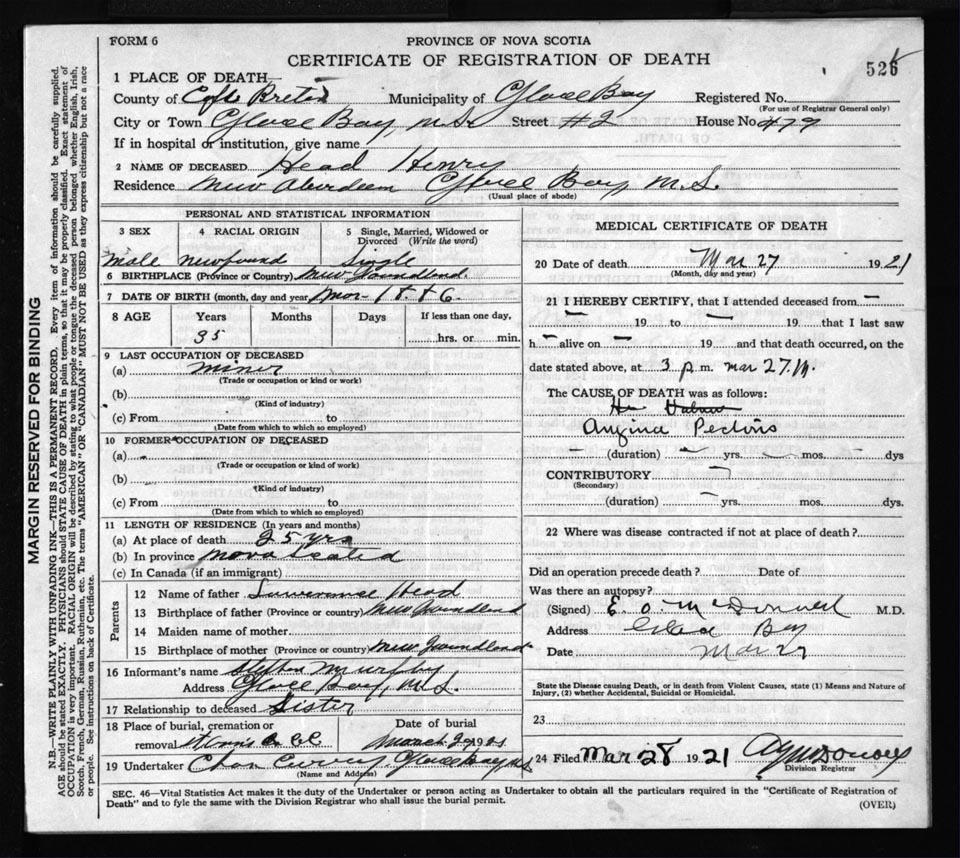 FORM 6
PROVINCE OF NOVA SCOTIA
CERTIFICATE OF REGISTRATION OF DEATH
526
1 PLACE OF DEATH—
County of Cape Breton Municipality of Glace Bay Registered No.
(For use of Registrar General only)
City or Town Glace Bay N.S. Street #2 House No 479
If in hospital or institution, give name
2 NAME OF DECEASED Head Henry
Residence New Aberdeen Glace Bay N.S.
(Usual place of abode)
PERSONAL AND STATISTICAL INFORMATION
3 SEX 4 RACIAL ORIGIN 5 Single, Married, Widowed or Divorced (Write the word)
Male Newfound Single
6 BIRTHPLACE (Province or Country) New Foundland
7 DATE OF BIRTH (month, day and year) Mar 1886
8 AGE Years Months Days If less than one day,
35 hrs. or min.
9 LAST OCCUPATION OF DECEASED
(a) miner
(Trade or occupation or kind or work)
(b)
(Kind of industry)
(c) From to
(Date from which to which so employed)
10 FORMER OCCUPATION OF DECEASED
(a)
(Trade or occupation or kind of work)
(b)
(Kind of industry)
(c) From to
(Date from which to which so employed)
11 LENGTH OF RESIDENCE (In years and months)
(a) At place of death 25 yrs
(b) In province Nova Scotia
(c) In Canada (if an immigrant)
Parents
12 Name of father Lawrence Head
13 Birthplace of father (Province or country) New Foundland
14 Maiden name of mother
15 Birthplace of mother (Province or country) New Foundland
16 Informant's name Murphy
Address Glace Bay, N.S.
17 Relationship to deceased Sister
18 Place of burial, cremation or removal
Date of burial
March
19 Undertaker Chas Curry, Glace Bay NS
(Name and Address)
MEDICAL CERTIFICATE OF DEATH
20 Date of death Mar 27 1921
(Month, day and year)
21 I HEREBY CERTIFY, that I attended deceased from —
— 19 to — 19 that I last saw
h — alive on — 19 and that death occurred, on the
date stated above, at 3 p.m. mar 27
The CAUSE OF DEATH was as follows:
Angina Pectoris
— (duration) — yrs. — mos. — dys
CONTRIBUTORY —
(Secondary)
(duration) — yrs. mos. dys.
22 Where was disease contracted if not at place of death?
Did an operation precede death? Date of
Was there an autopsy?
(Signed) E. O. McDonald M.D.
Address Glace Bay
Date Mar 27
State the Disease causing Death, or in death from Violent Causes, state (1) Means and Nature of
Injury, (2) whether Accidental, Suicidal or Homicidal.
23
24 Filed Mar 28 1921
Division Registrar
SEC. 46—Vital Statistics Act makes it the duty of the Undertaker or person acting as Undertaker to obtain all the particulars required in the "Certificate of Registration of
Death" and to fyle the same with the Division Registrar who shall issue the burial permit.
(OVER)
MARGIN RESERVED FOR BINDING
N.B.—WRITE PLAINLY WITH UNFADING INK—THIS IS A PERMANENT RECORD. Every item of information should be carefully supplied.
AGE should be stated EXACTLY. PHYSICIANS should STATE CAUSE OF DEATH in plain terms, so that it may be properly classified. Exact statement of
OCCUPATION is very important. RACIAL ORIGIN will be described by stating to what people or tongue the deceased person belonged, whether English, Irish,
Scotch, French, German, Russian, Ruthenian, etc. The terms "AMERICAN" OR "CANADIAN" MUST NOT BE USED as they express citizenship but not a race
or people. See instructions on back of Certificate.